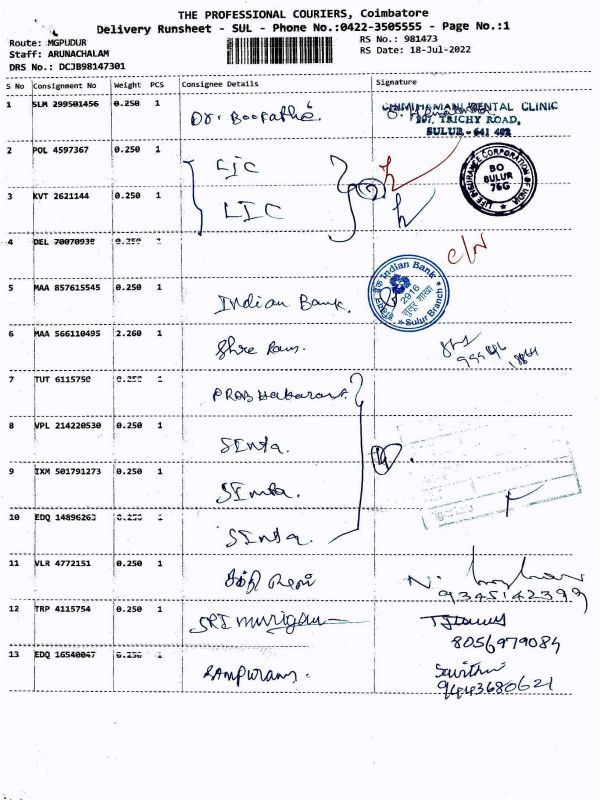 THE PROFESSIONAL COURIERS, Coimbatore
Delivery Runsheet - SUL - Phone No.:0422-3505555 - Page No.:1
Route: MGPUDUR
RS No.: 981473
Staff: ARUNACHALAM
RS Date: 18-Jul-2022
DRS No.: DCJB98147301
S No Consignment No Weight PCS Consignee Details Signature
1 SLM 299501456 0.250 1 Dr. Boopathi.
DENTAL CLINIC
TRICHY ROAD,
SULUR - 641 402
2 POL 4597367 0.250 1 LIC
LIFE INSURANCE CORPORATION OF INDIA
BO
SULUR
76G
3 KVT 2621144 0.250 1 LIC
2
4 DEL 0.250
C/N
5 MAA 857615545 0.250 1 Indian Bank.
Indian Bank
2916
Sulur Branch
6 MAA 566110495 2.260 1 Shree Ram
7 TUT 6115750 0.250 1 PRABHakaran.
8 VPL 214220530 0.250 1 SInta.
4
9 IXM 501791273 0.250 1 SInta.
10 EDQ 14896263 0.250 1 SInta.
11 VLR 4772151 0.250 1
9345142399
12 TRP 4115754 0.250 1 SRI murigan
8056979084
13 EDQ 16540047 0.250 1 RAMPURAM.
Savithri
9443680621